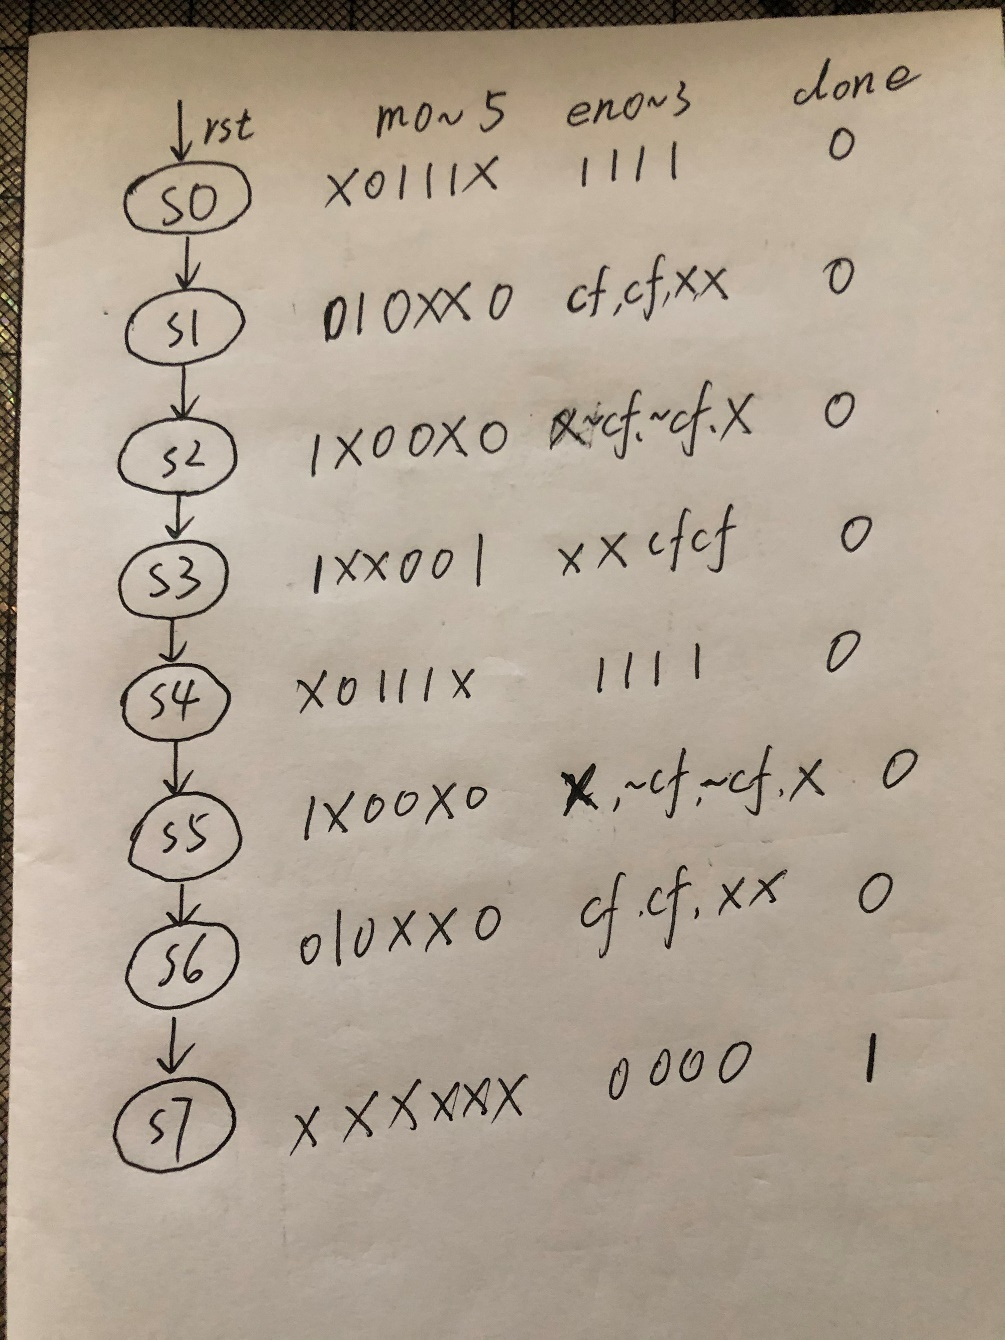 rst m0~5 en0~3 done
S0 X0111X 1111 0
S1 010XX0 cf,cf,XX 0
S2 1X00X0 X~cf,~cf,X 0
S3 1XX001 XXcfcf 0
S4 X0111X 1111 0
S5 1X00X0 X,~cf,~cf,X 0
S6 010XX0 cf.cf,XX 0
S7 XXXXXX 0000 1